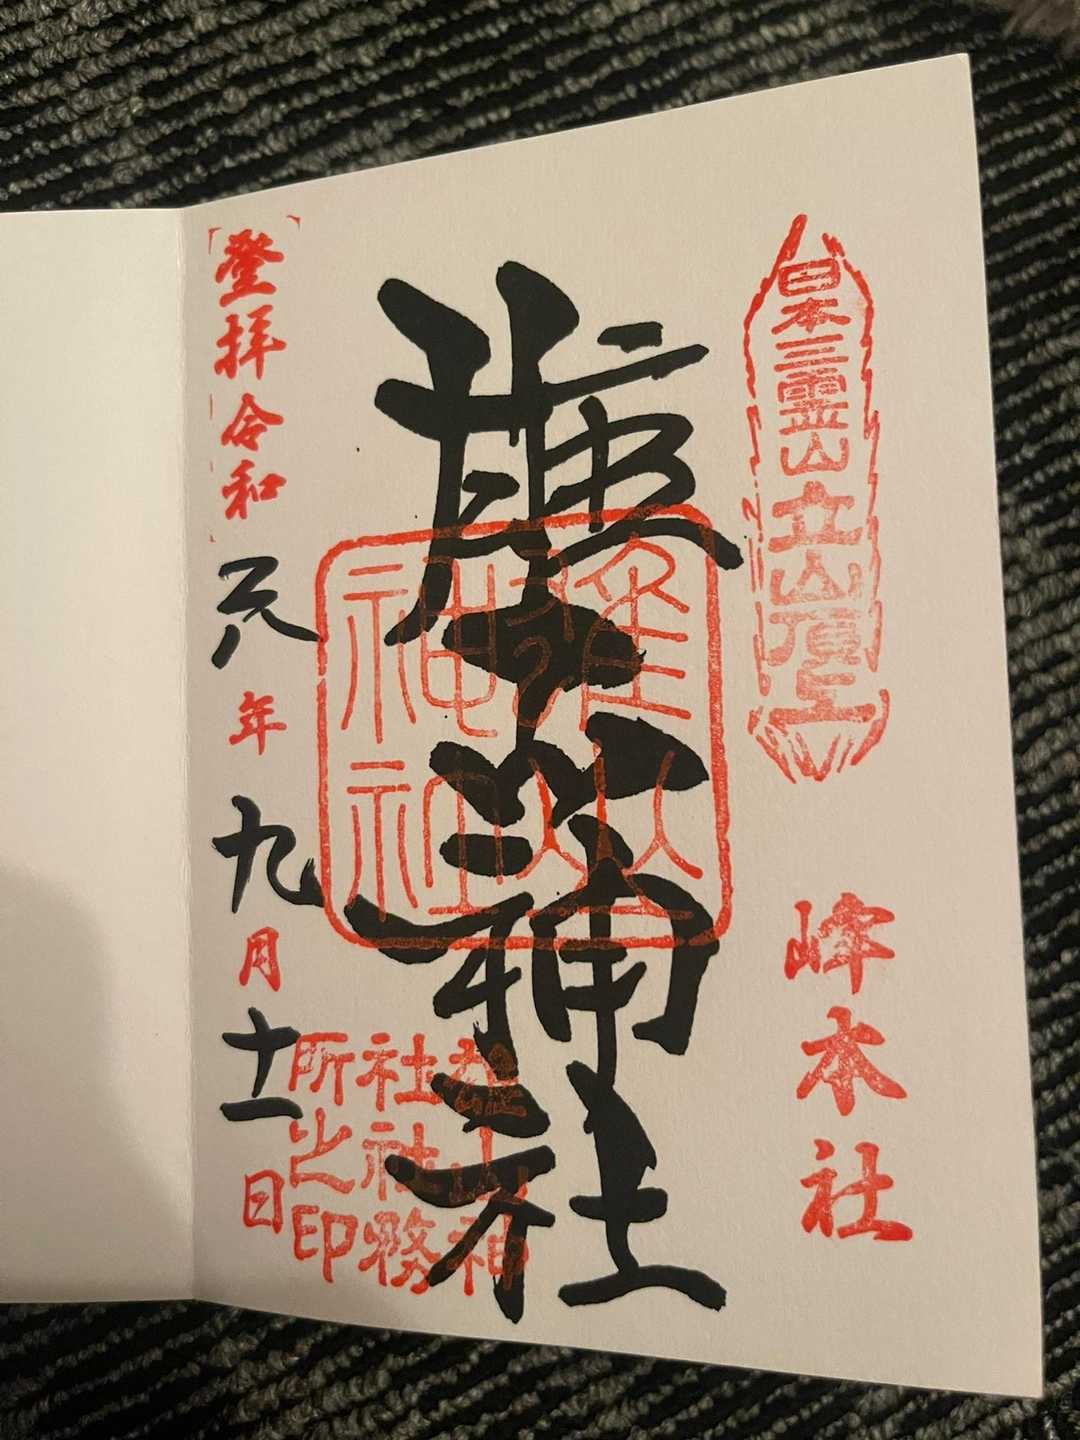 日本三霊山立山頂上
峰本社
雄山神社
雄山
神社
雄山神
社社務
所之印
登拝令和六年九月十一日